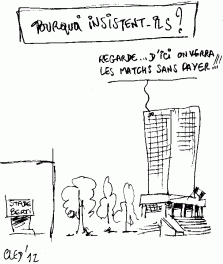 POURQUOI INSISTENT-ILS ?
REGARDE... D'ICI ON VERRA
LES MATCHS SANS PAYER...!!!
STADE
BERTI
CLED'12